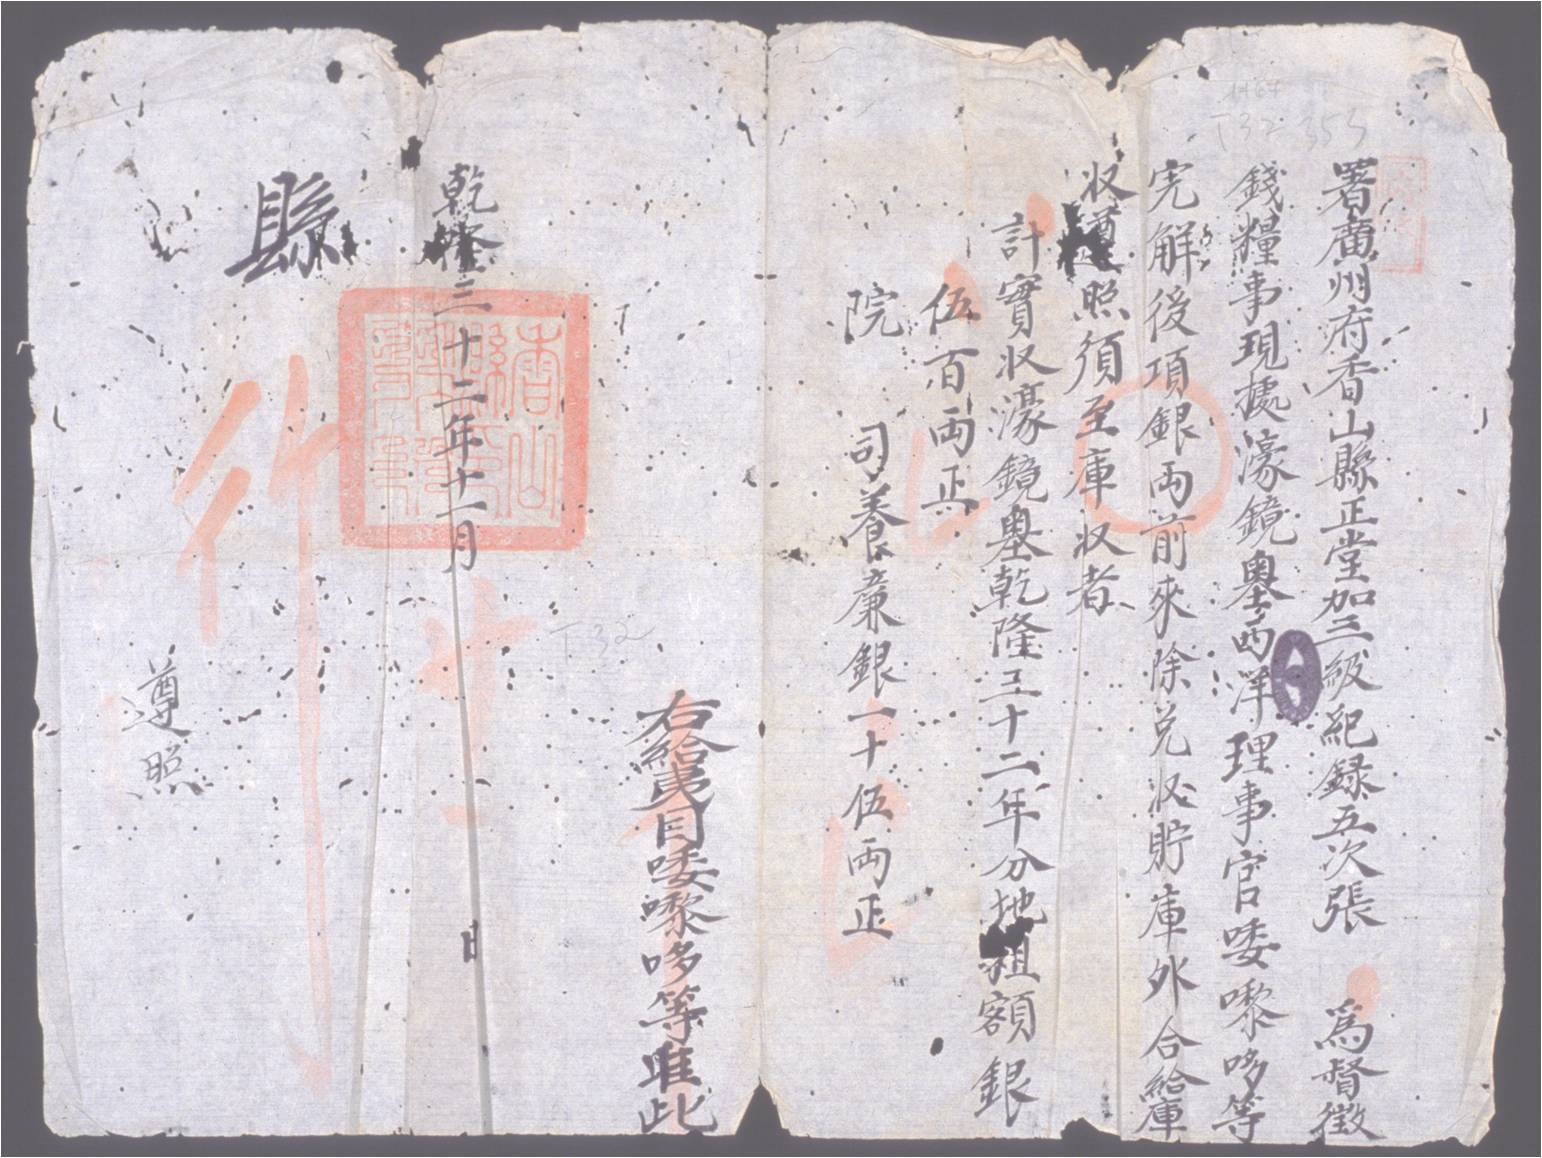 署廣州府香山縣正堂加三級紀録五次張　為督徵
錢糧事現據濠鏡奥西洋理事官唩嚟哆等
完解後項銀両前來除兑收貯庫外合給庫
収遵照須至庫収者
計實収濠鏡奥乾隆三十二年分地租額銀
伍百両正
院　司養廉銀一十伍両正
右給夷目唩嚟哆等准此
乾隆三十二年十一月　日
縣
行
遵照
T32 355
T32